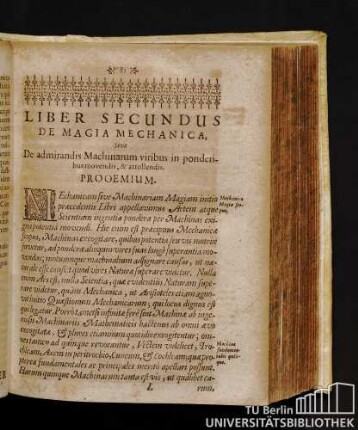 LIBER SECUNDUS
DE MAGIA MECHANICA,
sive
De admirandis Machinarum viribus in ponderi-
bus movendis, & attollendis.
PROOEMIUM.
MEchanicam sive Machinariam Magiam initio
præcedentis Libri appellavimus Artem atque
Scientiam ingentia pondera per Machinas exi-
gua potentia movendi. Hic enim est præcipuus Mechanicæ
scopus, Machinas excogitare, quibus potentia seu vis motrix
Nulla
Ars est, nulla Scientia, quæ videntius Naturam supe-
rare videatur, quàm Mechanica, ut Aristoteles etiam agno-
vit initio Quæstionum Mechanicarum; quo locus dignus est
Machinæ ab inge-
niosis Machinariis Mathematicis hactenus ab omni ævo
excogitatæ, & plures etiamnum quotidie excogitentur; om-
nes tamen ad quinque revocantur, Vectem videlicet, Tro-
chleam, Axem in peritrochio, Cuneum, & Cochleam quæ pro-
pterea fundamentales ac principales merito apellari possunt.
Harum quinque Machinarum tanta est vis, ut qualibet ea-
L
rum,
Mechanica
Magia
Machinæ
fundamen-
tales quin-
que.
TU Berlin
UNIVERSITÄTSBIBLIOTHEK